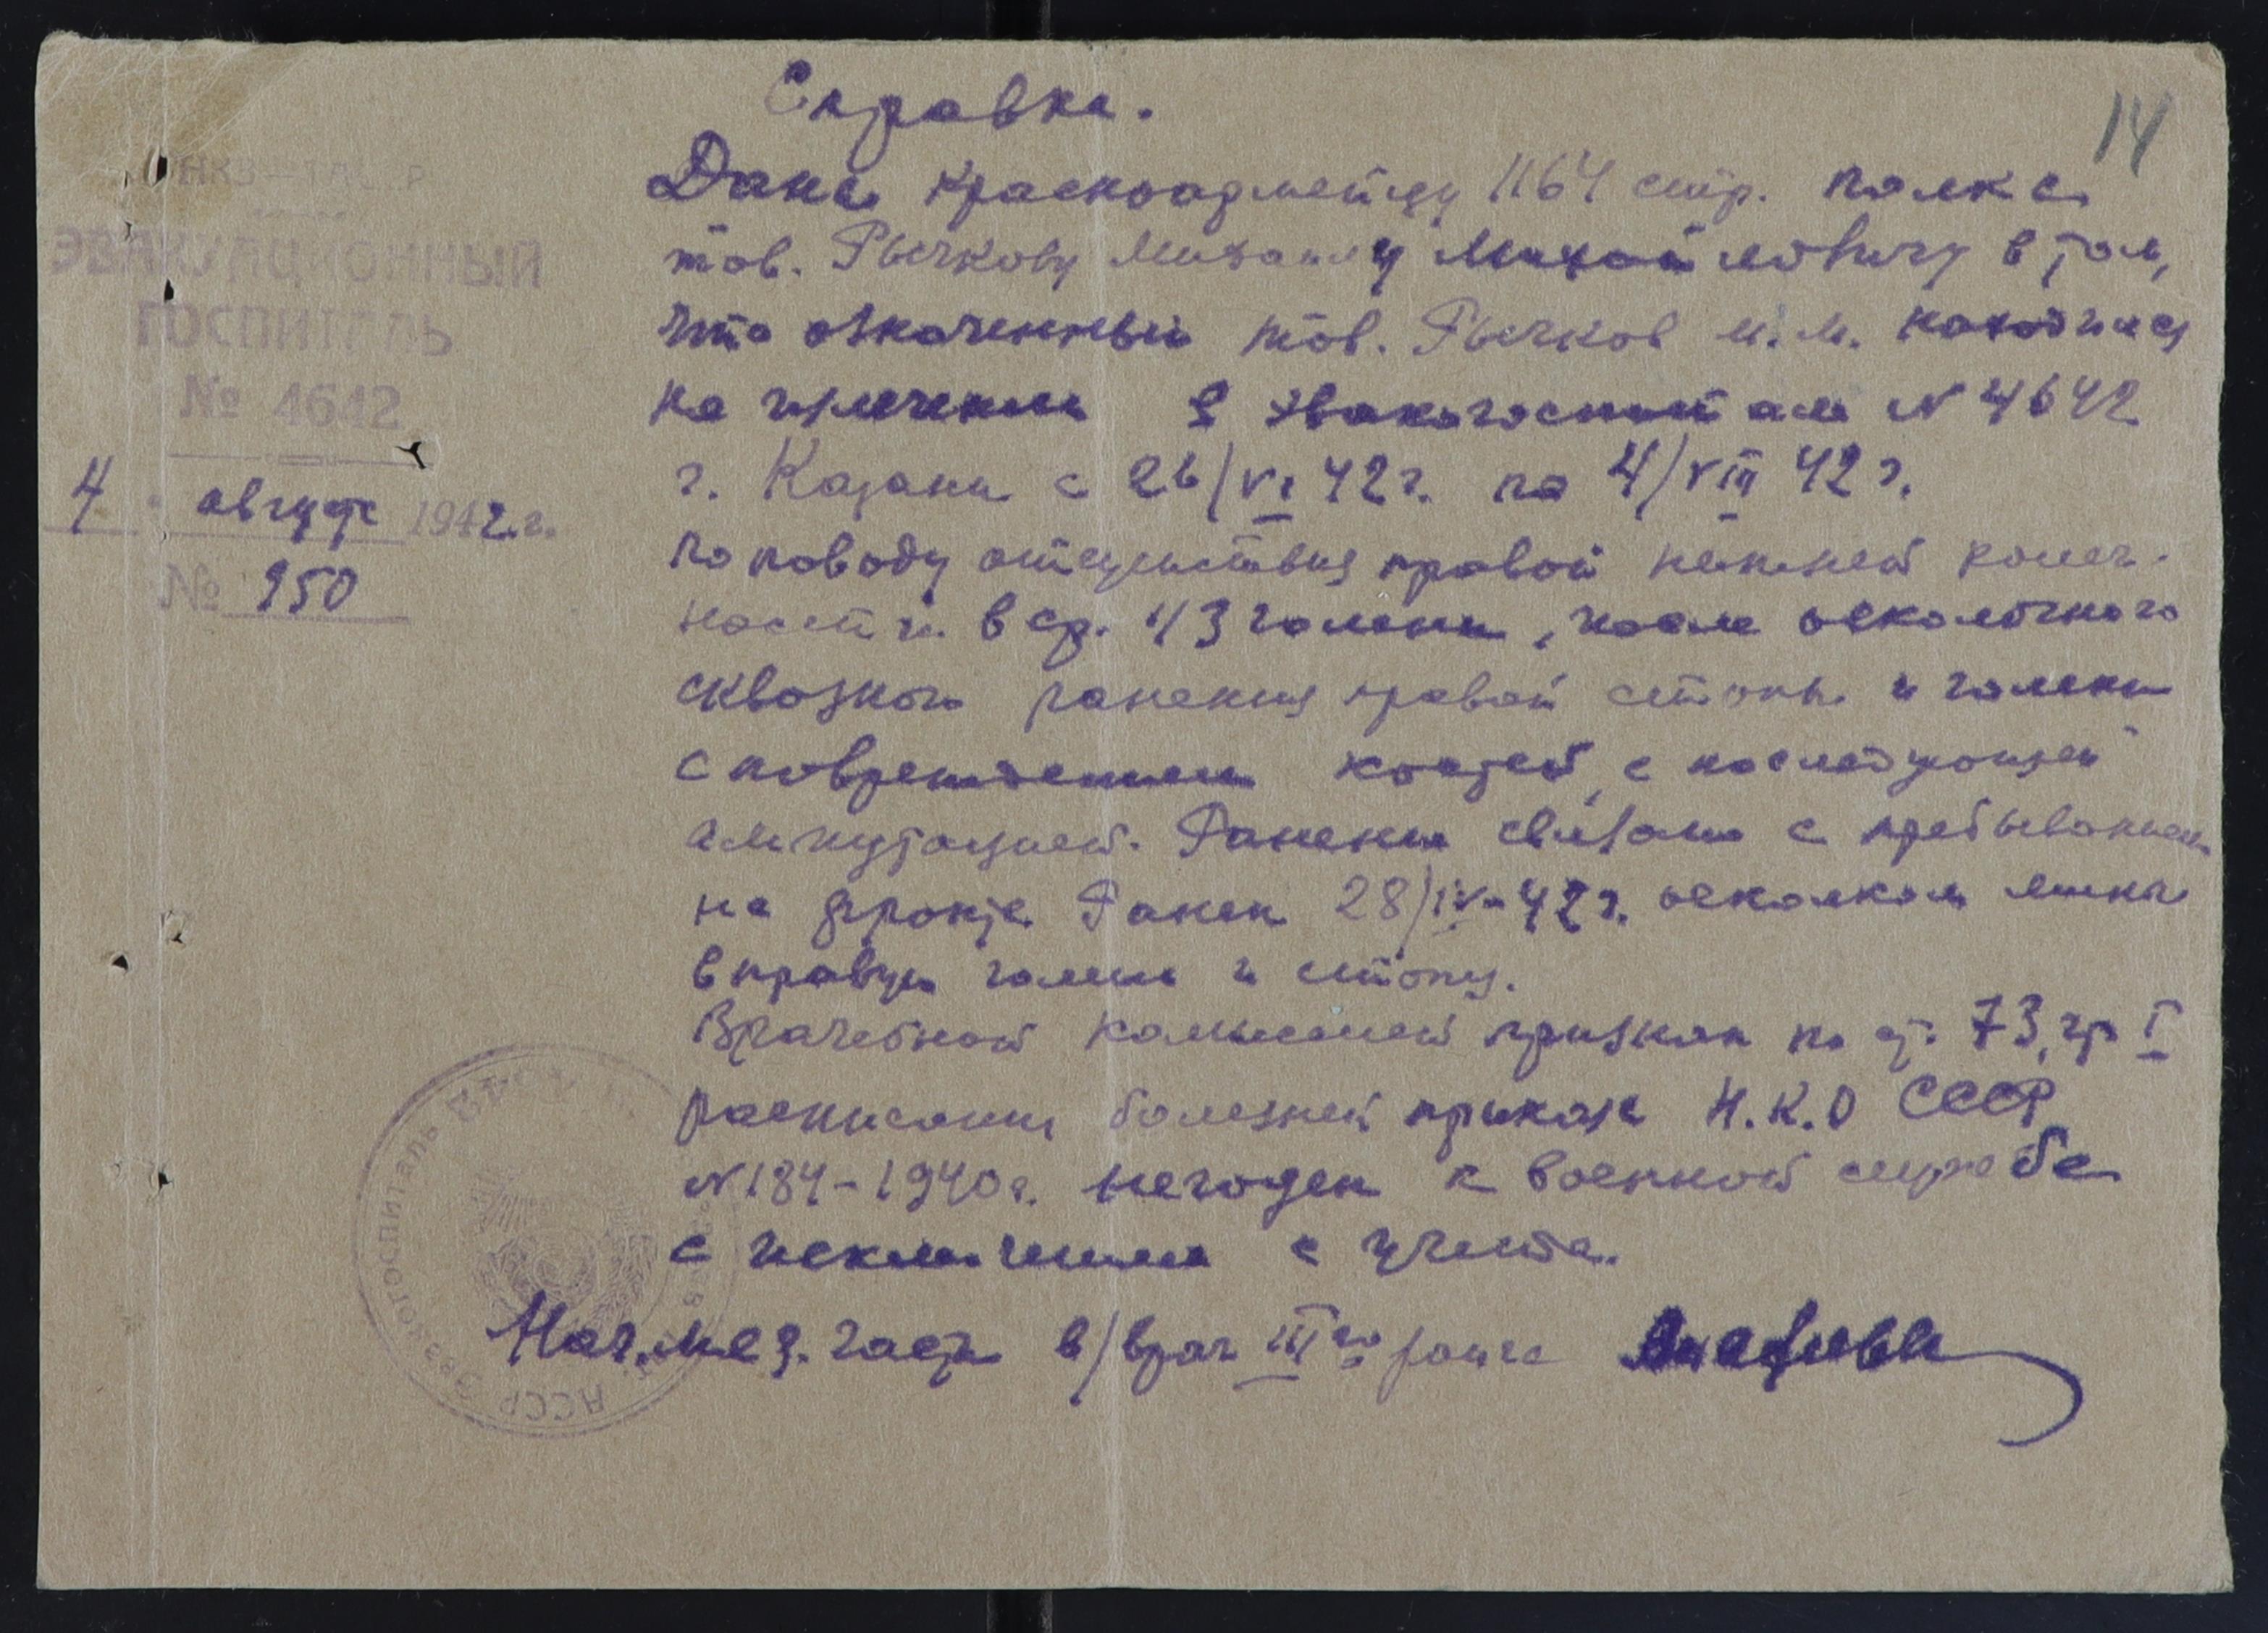 14
Справка.
НКЗ—ТАССР
ЭВАКУАЦИОННЫЙ
ГОСПИТАЛЬ
№ 4642
4 август 1942 г.
№ 950
Дана красноармейцу 1164 стр. полка
тов. Рычкову Михаилу Михайловичу в том,
что означенный тов. Рычков М.М. находился
на излечении в эвакогоспитале N 4642
г. Казани с 26/VI 42 г. по 4/VIII 42 г.
по поводу отсутствия правой нижней конеч-
ности в ср. 1/3 голени, после осколочного
сквозного ранения правой стопы и голени
с повреждением костей, с последующей
ампутацией. Ранение связано с пребыванием
на фронте. Ранен 28/IV-42 г. осколком мины
в правую голень и стопу.
Врачебной комиссией признан по ст. 73, гр I
расписания болезней приказа Н.К.О СССР
N 184-1940 г. негоден к военной службе
с исключением с учета.
Нач. мед. части в/врач III го ранга
АССР Эвакогоспиталь